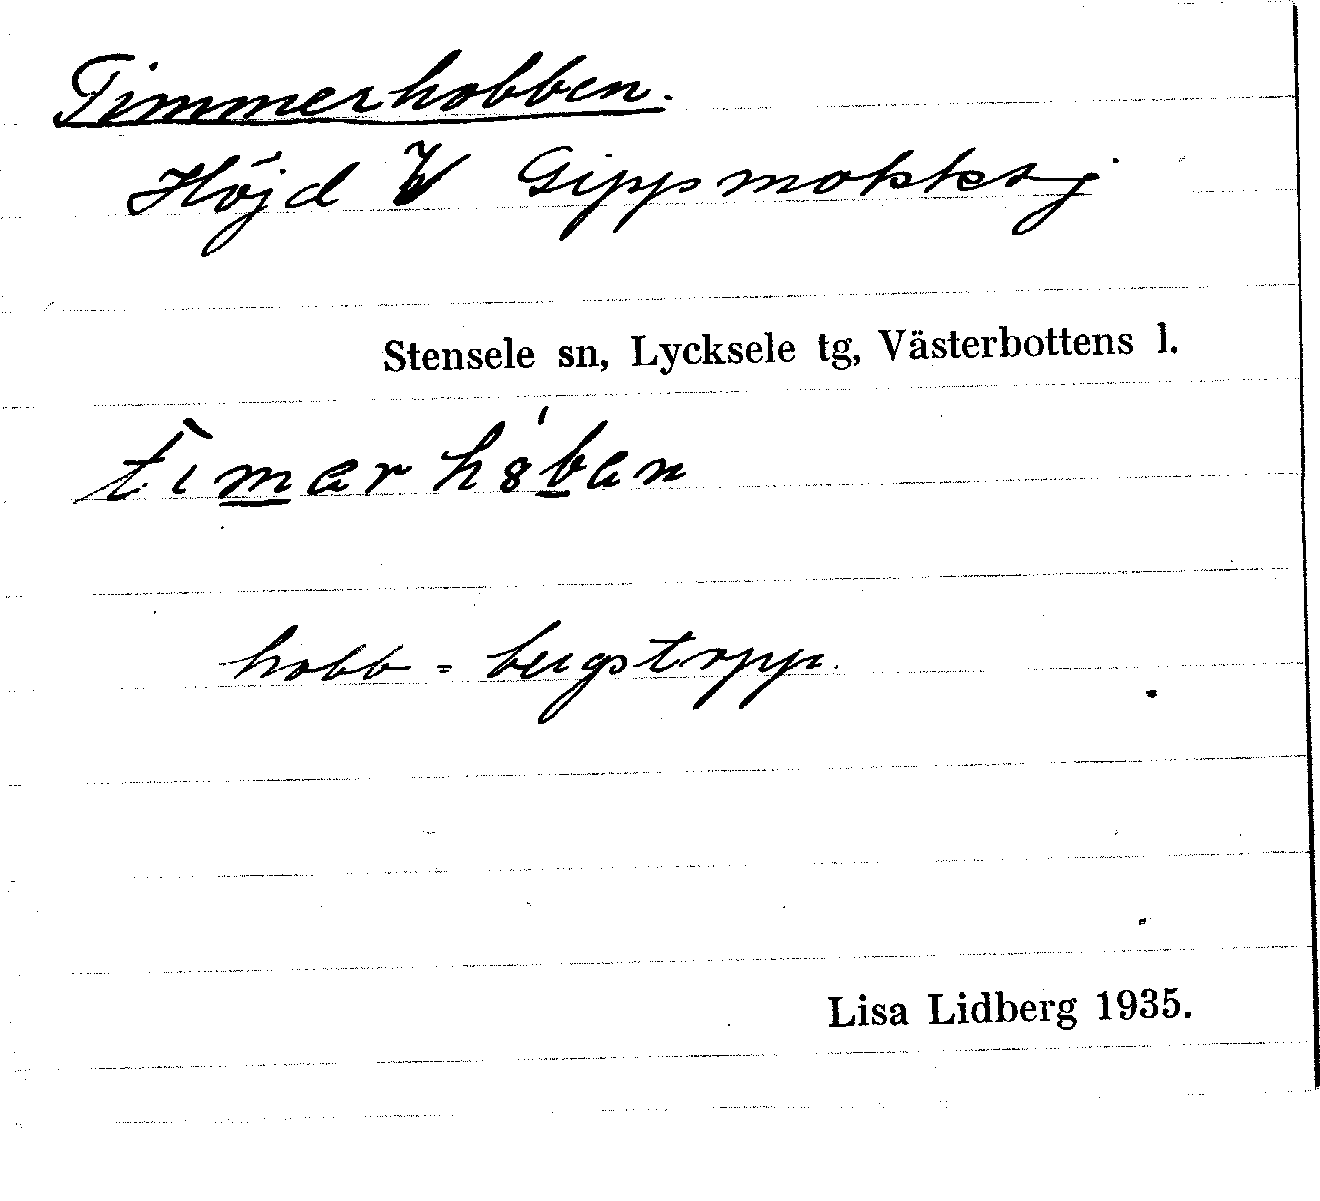 Timmerhobben.
Höjd V Gippmokksj.
Stensele sn, Lycksele tg, Västerbottens l.
hobb = bergstopp.
Lisa Lidberg 1935.